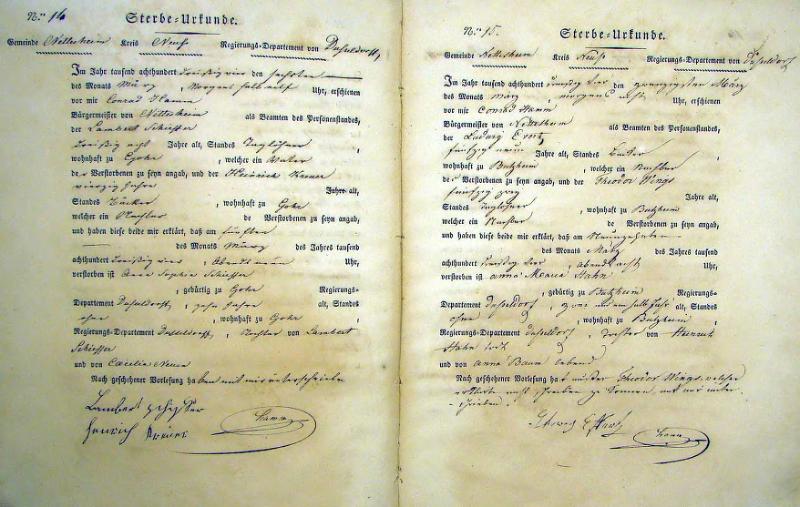 N.ro 16
Sterbe-Urkunde.
Gemeinde Nettesheim Kreis Neuß Regierungs-Departement von Duſseldorff,
Im Jahr tausend achthundert dreißig vier den sechsten
des Monats März, Morgens halb Uhr, erschienen
vor mir Conrad Hamm
Bürgermeister von Nettesheim als Beamten des Personenstandes,
der Lambert Schieffer
dreißig acht Jahre alt, Standes Taglöhner
wohnhaft zu Gohr, welcher ein Vater
de Verstorbenen zu seyn angab, und der Heinrich
vierzig Jahre Jahre alt,
Standes, wohnhaft zu Gohr
welcher ein Nachbar de Verstorbenen zu seyn angab,
und haben diese beide mir erklärt, daß am fünften
des Monats März des Jahres tausend
achthundert dreißig vier, Abends neun Uhr,
verstorben ist Anna Sophia Schieffer
, gebürtig zu Gohr Regierungs-
Departement Dusseldorff, zehn Jahre alt, Standes
ohne, wohnhaft zu Gohr
Regierungs-Departement Dusseldorff, Tochter von Lambert
Schieffer
und von Caecilia
Nach geschehener Vorlesung haben mit mir unterschrieben
Lambert schiffer
Henrich
Hamm
N.ro 15.
Sterbe-Urkunde.
Gemeinde Nettesheim Kreis Neuß Regierungs-Departement von Duſseldorf
Im Jahr tausend achthundert dreißig vier den zwanzigsten März
des Monats März, morgens acht Uhr, erschienen
vor mir Conrad Hamm
Bürgermeister von Nettesheim als Beamten des Personenstandes,
der Ludwig
fünfzig neun Jahre alt, Standes
wohnhaft zu Butzheim, welcher ein Nachbar
de Verstorbenen zu seyn angab, und der Theodor Wings
fünfzig zwey Jahre alt,
Standes Taglöhner, wohnhaft zu Butzheim
welcher ein Nachbar de Verstorbenen zu seyn angab,
und haben diese beide mir erklärt, daß am Neunzehnten
des Monats März des Jahres tausend
achthundert dreißig vier, abends acht Uhr,
verstorben ist anna Maria Hahn
, gebürtig zu Butzheim Regierungs-
Departement Duſseldorf, zwei und ein halb Jahr alt, Standes
ohne, wohnhaft zu Butzheim
Regierungs-Departement Duſseldorf, Tochter von Heinrich
Hahn todt
und von anna Baum lebend
Nach geschehener Vorlesung hat Theodor Wings, welcher
erklärte nicht schreiben zu können, mit mir unter-
schrieben.
Hamm